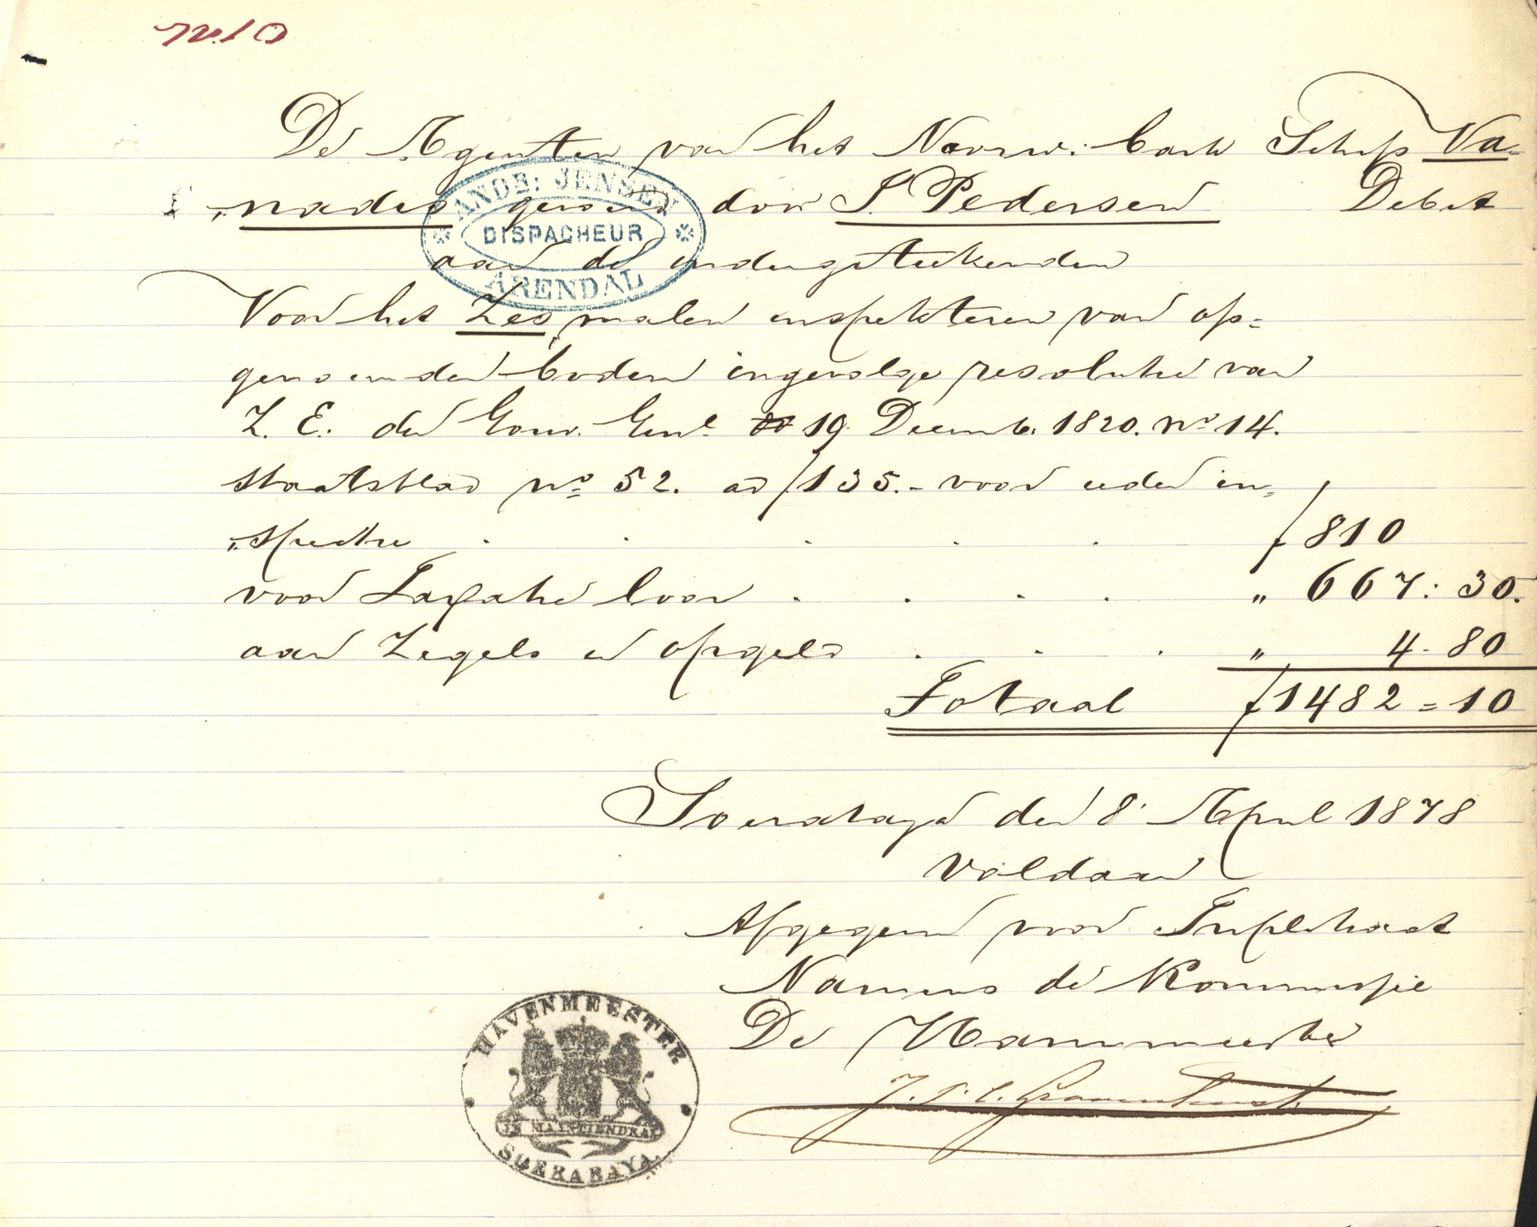 No 10
De Agenten van het Noorw. bark Schip Va-
„nadis gevoerd door S. Pedersen Debet
ANDS: JENSEN
DISPACHEUR
ARENDAL
aan de ondergeteekenden
Voor het Zes malen inspekteren van op=
genoemden bodem ingevolge resolutie van
Z. E. den Gouv. Genl. 19 Decemb. 1820. No 14.
staatsblad No 52. ad ƒ135.- voor ieder in„
„spectie . . . . . ƒ 810
voor Taxatie loon . . . . „ 667: 30.
aan Zegels en opgeld . . . „ 4. 80
Totaal ƒ1482 = 10
Soerabaya den 8 April 1878
Voldaan
Afgegeven voor Triplicaat
Namens de Kommissie
De Havenmeester
HAVENMEESTER
JE MAINTIENDRAI
SOERABAYA.